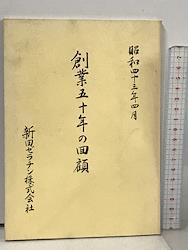 昭和四十三年四月
創業五十年の回顧
新田ゼラチン株式会社